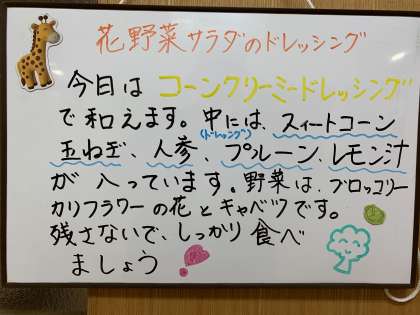 花野菜サラダのドレッシング
今日は コーンクリーミードレッシング
で和えます。中には、スィートコーン
(ドレッシング)
玉ねぎ、人参、プルーン、レモン汁
が入っています。野菜は、ブロッコリー
カリフラワーの花とキャベツです。
残さないで、しっかり食べ
ましょう